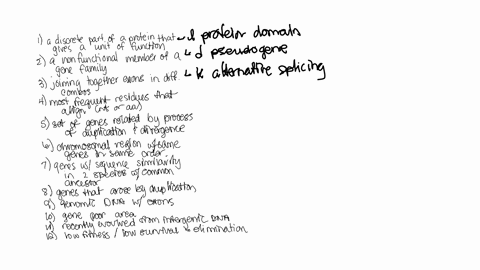 1) a discrete part of a protein that
gives a unit of function
2) a nonfunctional member of a
gene family
3) joining together exons in diff.
combos
4) most frequent residues that
align (nt or aa)
5) set of genes related by process
of duplication & divergence
6) chromosomal region w/ same
genes in same order
7) genes w/ sequence similarity
in 2 species w/ common
ancestor
8) genes that arose by duplication
9) genomic DNA w/ exons
10) gene poor area
11) recently evolved from intergenic DNA
12) low fitness / low survival elimination
protein domain
d pseudogene
k alternative splicing